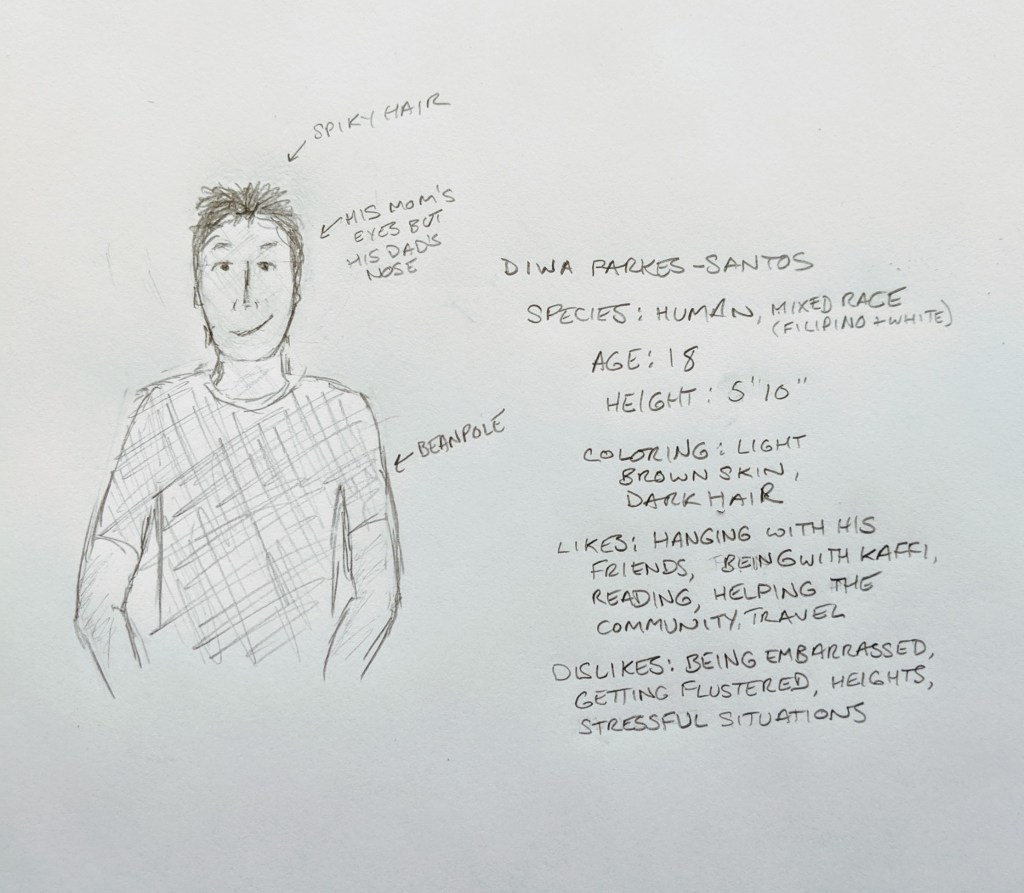 SPIKY HAIR
HIS MOM'S
EYES BUT
HIS DAD'S
NOSE
BEANPOLE
DIWA PARKES-SANTOS
SPECIES: HUMAN, MIXED RACE
(FILIPINO + WHITE)
AGE: 18
HEIGHT: 5"10"
COLORING: LIGHT
BROWN SKIN,
DARK HAIR
LIKES: HANGING WITH HIS
FRIENDS, BEING WITH KAFFI,
READING, HELPING THE
COMMUNITY, TRAVEL
DISLIKES: BEING EMBARRASSED,
GETTING FLUSTERED, HEIGHTS,
STRESSFUL SITUATIONS